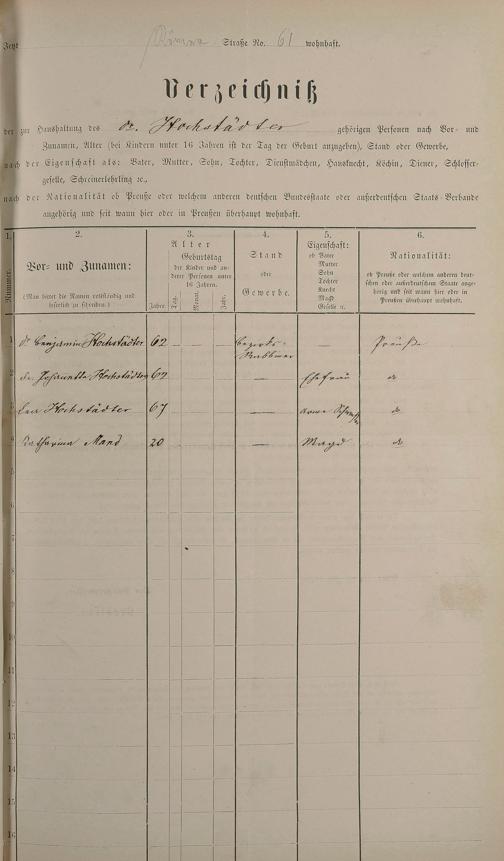 Jetzt Römer Straße No. 61 wohnhaft.
Verzeichniß
der zur Haushaltung des Dr. Hochstädter gehörigen Personen nach Vor- und
Zunamen, Alter (bei Kindern unter 16 Jahren ist der Tag der Geburt anzugeben), Stand oder Gewerbe,
nach der Eigenschaft als: Vater, Mutter, Sohn, Tochter, Dienstmädchen, Hausknecht, Köchin, Diener, Schlosser-
geselle, Schreinerlehrling ꝛc.,
nach der Nationalität ob Preuße oder welchem anderen deutschen Bundesstaate oder außerdeutschen Staats-Verbande
angehörig und seit wann hier oder in Preußen überhaupt wohnhaft.
1. 2. 3. 4. 5. 6.
Nummer.
Vor- und Zunamen:
(Man bittet die Namen vollständig und
leserlich zu schreiben.)
Alter
Jahre.
Geburtstag
der Kinder und an-
derer Personen unter
16 Jahren.
Tag. Monat. Jahr.
Stand
oder
Gewerbe.
Eigenschaft:
ob Vater
Mutter
Sohn
Tochter
Knecht
Magd
Geselle ꝛc.
Nationalität:
ob Preuße oder welchem anderen deut-
schen oder außerdeutschen Staate ange-
hörig und seit wann hier oder in
Preußen überhaupt wohnhaft.
1 Dr Benjamin Hochstädter 62 — — — Bezirks- Rabbiner — Preuße
2 Johannetta Hochstädter 62 — Ehefrau do
3 Hochstädter 67 — do
4 Catharina Mand 20 — Magd do
5
6
7
8
9
10
11
12
13
14
15
16